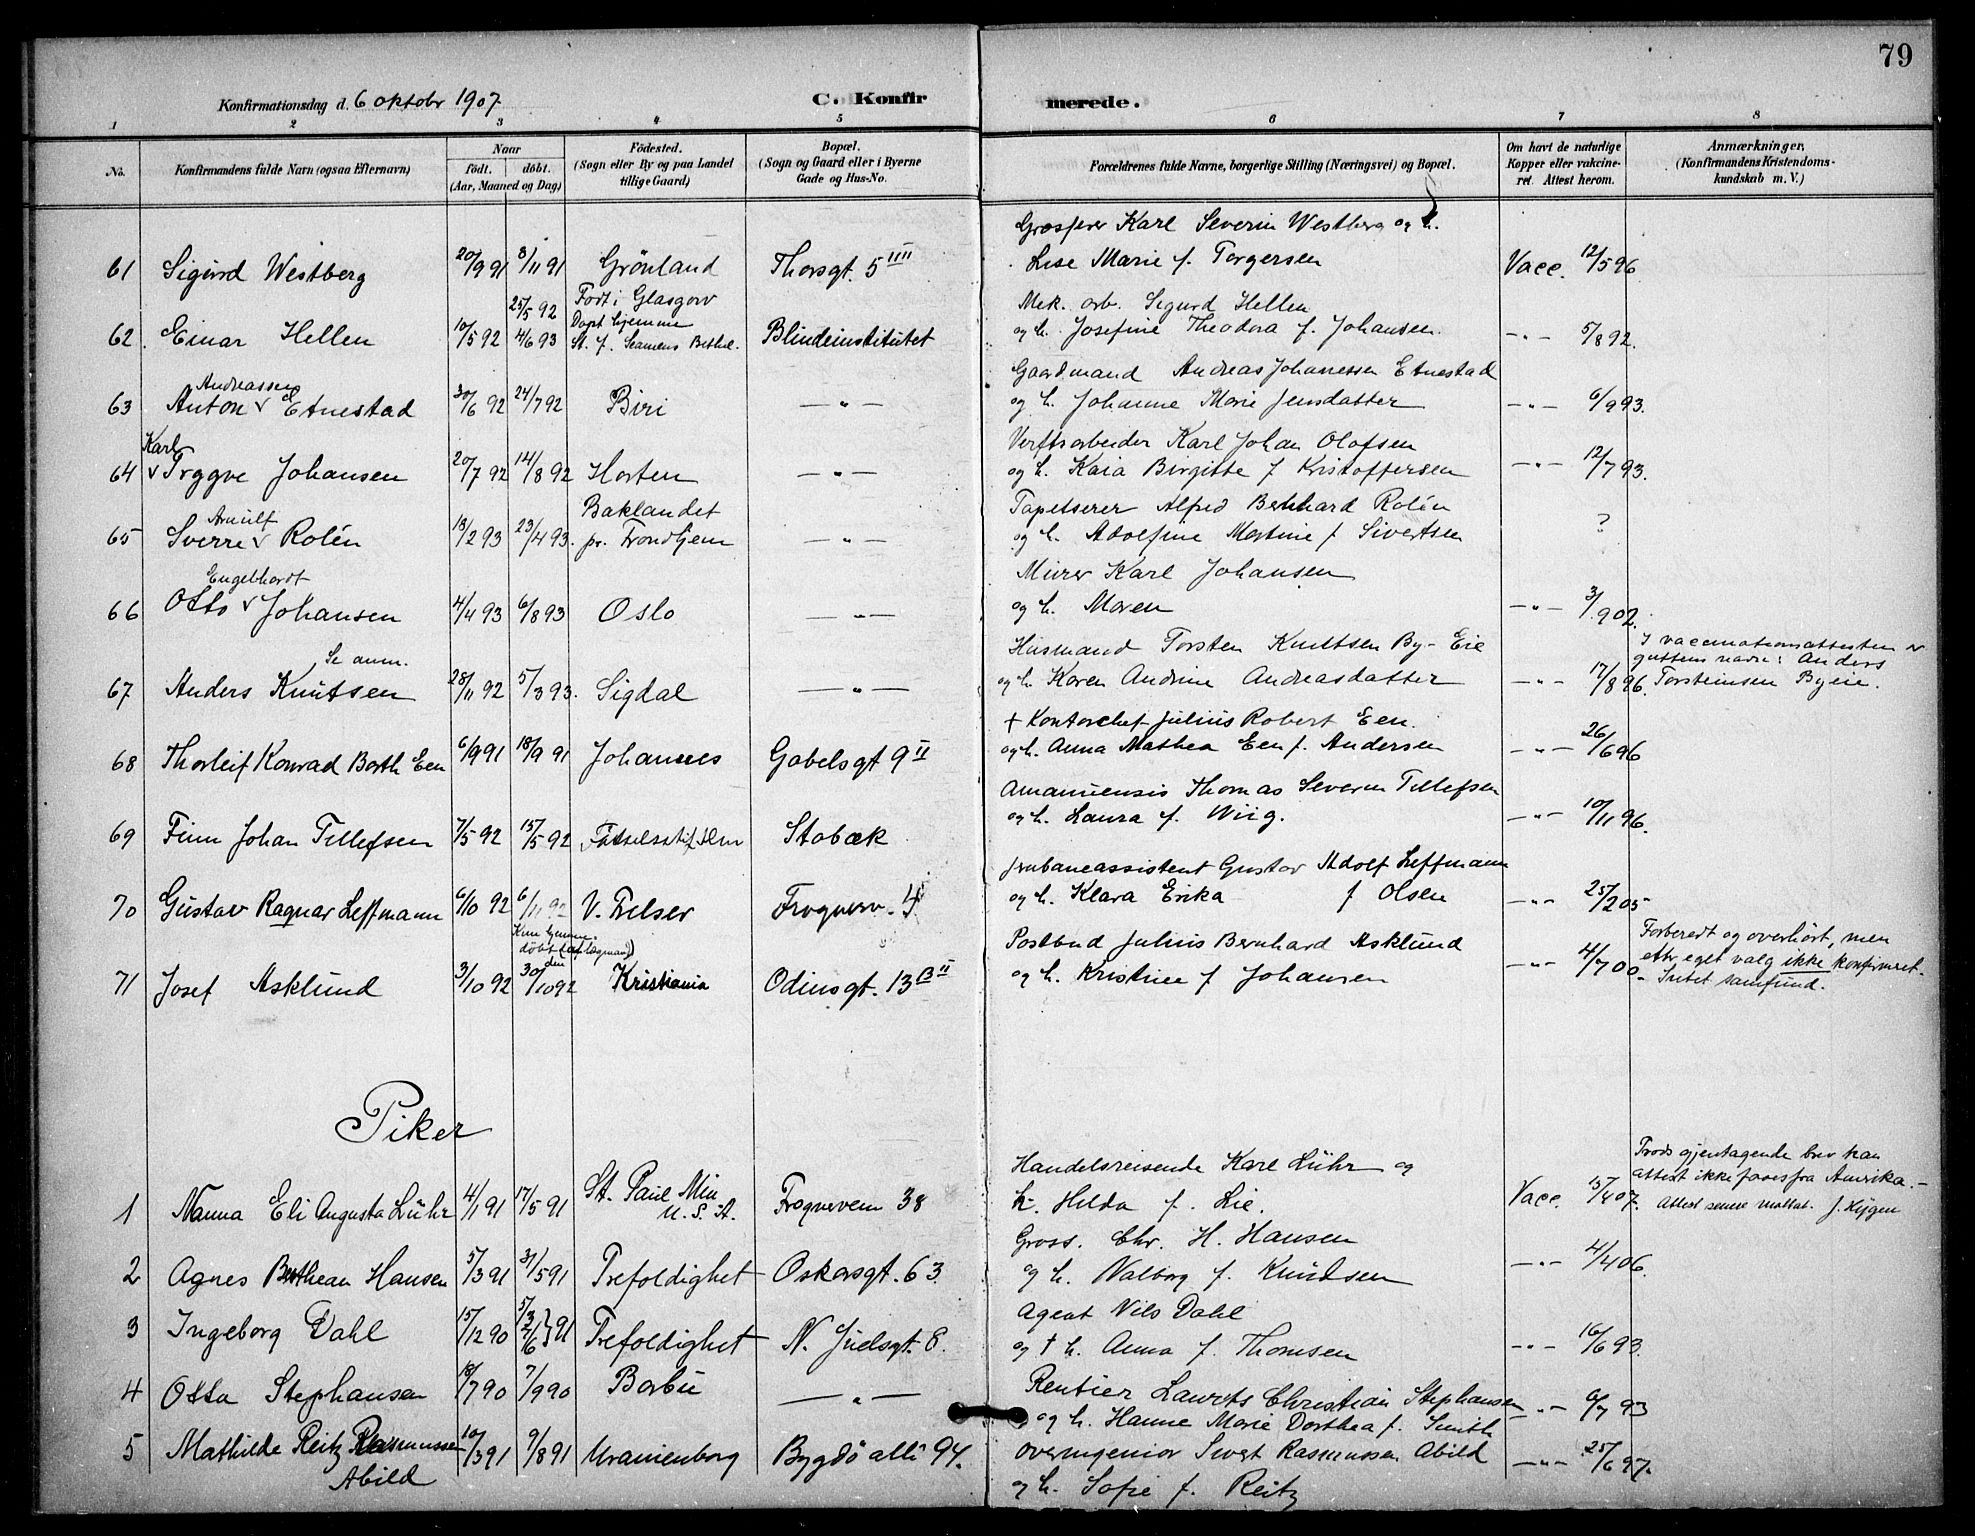 79
Konfirmationsdag d. 6 oktobr 1907.
C. Konfirmerede.
1 2 3 4 5 6 7 8
No.
Konfirmandens fulde Navn (ogsaa Efternavn)
Naar
født. døbt.
(Aar, Maaned og Dag)
Fødested.
(Sogn eller By og paa Landet
tillige Gaard)
Bopæl.
(Sogn og Gaard eller i Byerne
Gade og Hus-No.
Forældrenes fulde Navne, borgerlige Stilling (Næringsvei) og Bopæl.
Om havt de naturlige
Kopper eller vakcine-
ret. Attest herom.
Anmærkninger.
(Konfirmandens Kristendoms-
kundskab m. V.)
Grosserer Karl Severin Westberg og h.
61 Sigurd Westberg 20/9 91 8/11 91 Grönland Thorsgt. 5 IIII Lise Marie f. Torgersen Vacc. 12/5 96
25/5 92 Født i Glasgow Mek. arb. Sigurd Hellen
Døpt hjemme
62. Einar Hellen 10/5 92 4/6 93 St. f. Seamens Bethel. Blindeinstitutet og h. Josefine Theodora f. Johansen. -"- 5/8 92.
Andreassen Gaardmand Andreas Johannessen Etnestad
63 Anton v Etnestad 30/6 92 24/7 92 Biri -"- og h. Johanne Marie Jensdatter -"- 6/9 93.
Karl Verftsarbeider Karl Johan Olafsen
64 v Trygve Johansen 20/7 92 14/8 92 Horten -"- og h. Kaia Birgitte f Kristoffersen -"- 12/7 93.
Arnulf Baklandet Tapetserer Alfred Bernhard Rolén
65 Sverre v Rolén 13/2 93 23/4 93. pr. Trondhjem -"- og h. Adolfine Martine f Sivertsen ?
Engelhardt Murer Karl Johansen
66 Otto v Johansen 4/4 93 6/8 93 Oslo -"- og h. Maren -"- 3/ 902.
Se anm. Husmand Torsten Knutsen By-Eie I vaccinationsattesten
guttens navn: Anders
67 Anders Knutsen 28/11 92 5/3 93. Sigdal -"- og h. Karen Andrine Andreasdatter -"- 17/8 96. Torsteinsen Byeie.
† Kontorchef Julius Robert Een.
68 Thorleif Konrad Barth Een 6/9 91 18/9 91 Johannes Gabelsgt 9 II og h. Anna Mathea Een f. Andersen -"- 26/6 96
Amanuensis Thomas Severin Tellefsen
69 Finn Johan Tellefsen 7/5 92 15/5 92 Fødselsstiftelsen Stabæk og h. Laura f. Wiig. -"- 10/11 96.
Jernbaneassistent Gustav Adolf Leffmann
70 Gustav Ragnar Leffmann 6/10 92 6/11 92 V. Frelser Frognerv. 4 og h. Klara Erika f Olsen -"- 25/2 05
Kun hjemme-
døbt (af lægmand)
den
Postbud Julius Bernhard Asklund Forberedt og overhørt, men
eftr eget valg ikke konfirmeret.
71 Josef Asklund 3/10 92 30/10 92 Kristiania Odinsgt. 13 B II og h. Kristine f Johansen -"- 4/7 00 - Intet samfund.
Piker
Handelsreisende Karl Lühr og Trods gjentagende brev kan
attest ikke faaes fra Amerika. -
1 Nanna Eli Augusta Lühr 4/1 91 17/5 91 St. Paul Min U. S. A. Frognerveien 38 h. Hilda f. Lie. Vacc. 15/4 07. Attest senere mottat. J. Kijgen
Gross. Chr. H. Hansen
2 Agnes Berthean Hansen 5/3 91 31/5 91 Trefoldighet Oskarsgt. 63. og h. Valborg f. Knudsen -"- 4/4 06.
Agent Nils Dahl
3 Ingeborg Dahl 15/12 90 5/3 2/6 } 91 Trefoldighet N. Juelsgt. 8. og † h. Anna f. Thomsen -"- 16/6 93.
Rentier Laurits Christian Stephansen
4 Otta Stephansen 18/7 90 7/9 90 Barbu -"- og h. Hanne Marie Dorthea f. Smith -"- 6/7 93
5 Mathilde Reitz Rasmussen Abild 10/3 91 9/8 91 Uranienborg Bygdö allé 94. Overingeniør Sivert Rasmussen Abild -"- 25/6 97.
og h. Sofie f. Reitz